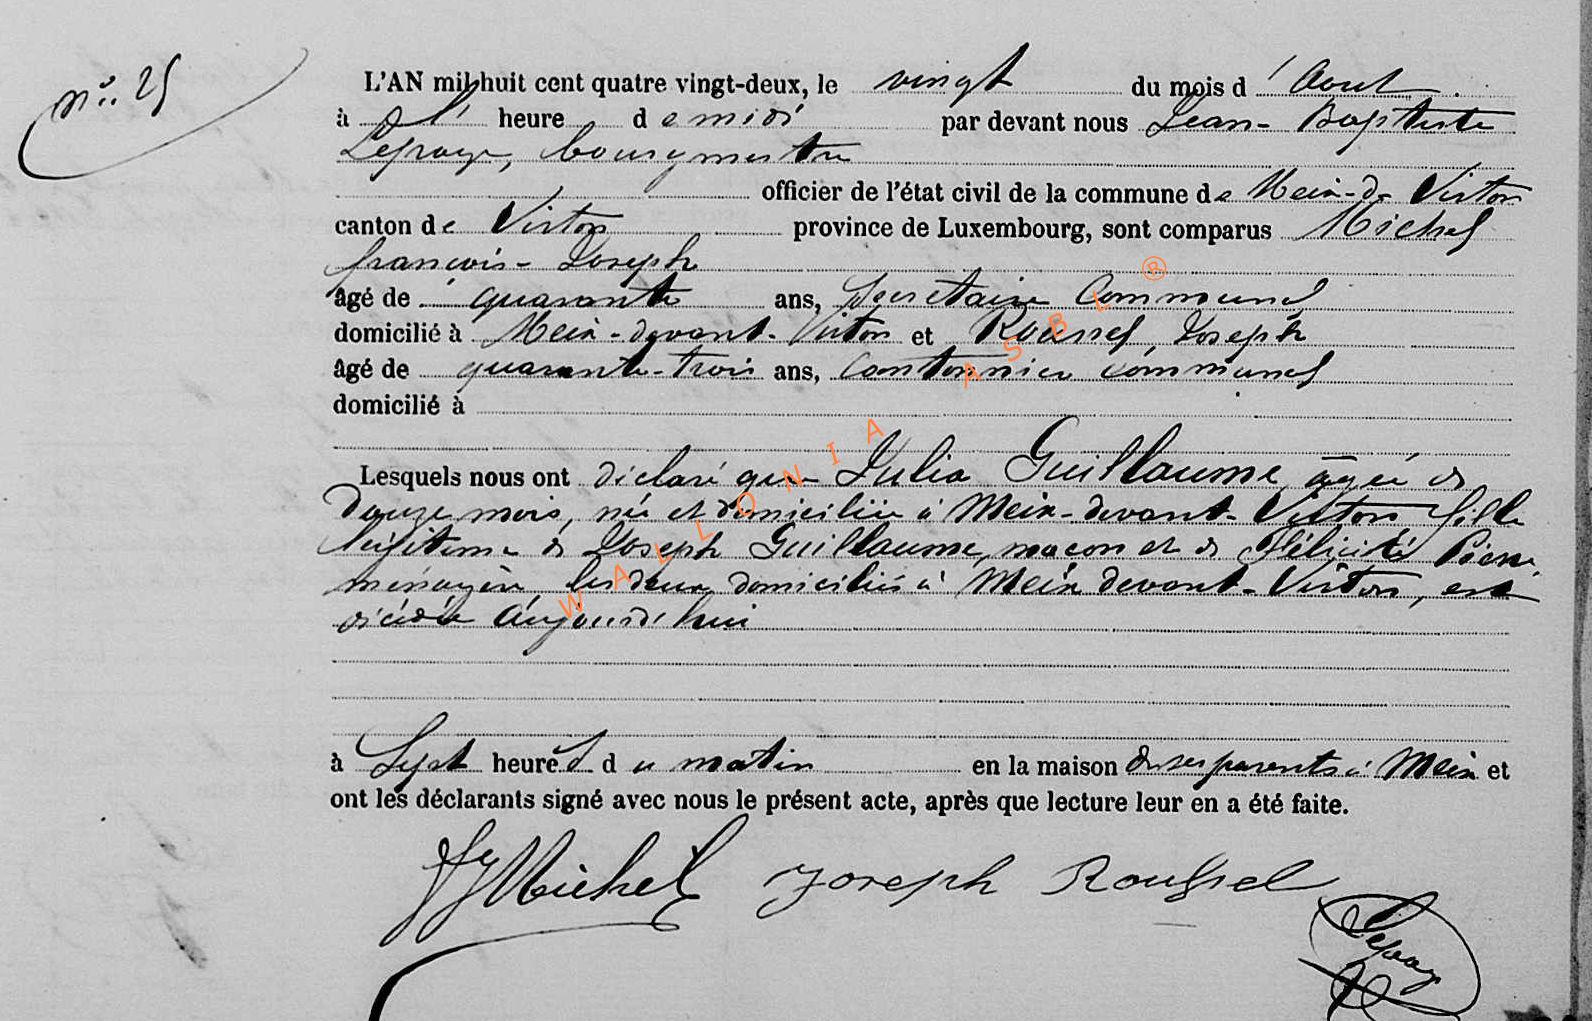 n°: 25
L'AN mil huit cent quatre vingt-deux, le vingt du mois d'Aout.
à l' heure de midi par devant nous Jean-Baptiste
Lepage, bourgmestre
officier de l'état civil de la commune de Meix-dt-Virton
canton de Virton province de Luxembourg, sont comparus Michel
françois-Joseph
âgé de quarante ans, Secrétaire Communal
domicilié à Meix-devant-Virton et Roussel, Joseph
âgé de quarante-trois ans, Cantonnier communal
domicilié à
Lesquels nous ont déclaré que Julia Guillaume, âgée de
Douze mois, née et domiciliée à Meix-devant-Virton fille
légitime de Joseph Guillaume, maçon et de Félicité Pierre
ménagère, les deux domiciliés à Meix devant-Virton, est
décédée aujourd'hui
à Sept heures du matin en la maison de ses parents à Meix et
ont les déclarants signé avec nous le présent acte, après que lecture leur en a été faite.
Michel Joseph Roussel
Lepage
WALLONIA ASBL ®